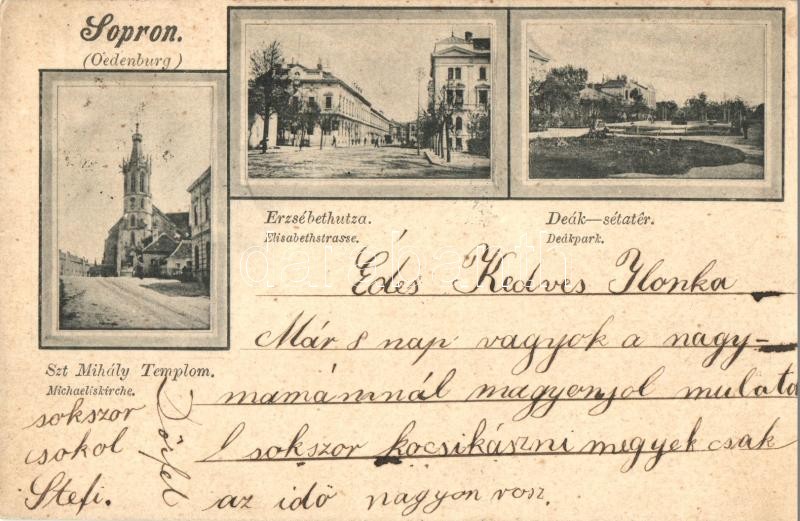 Sopron.
(Oedenburg)
Erzsébethutza.
Elisabethstrasse.
Deák—sétatêr.
Deákpark.
Szt Mihály Templom.
Michaeliskirche.
Édes Kedves Ilonka
Már 8 nap vagyok a nagy-
mamámnál magyonjol mulata
l sokszor kocsikászni megyek csak
az idö nagyon vosz.
sokszor
csokol
Stefi.